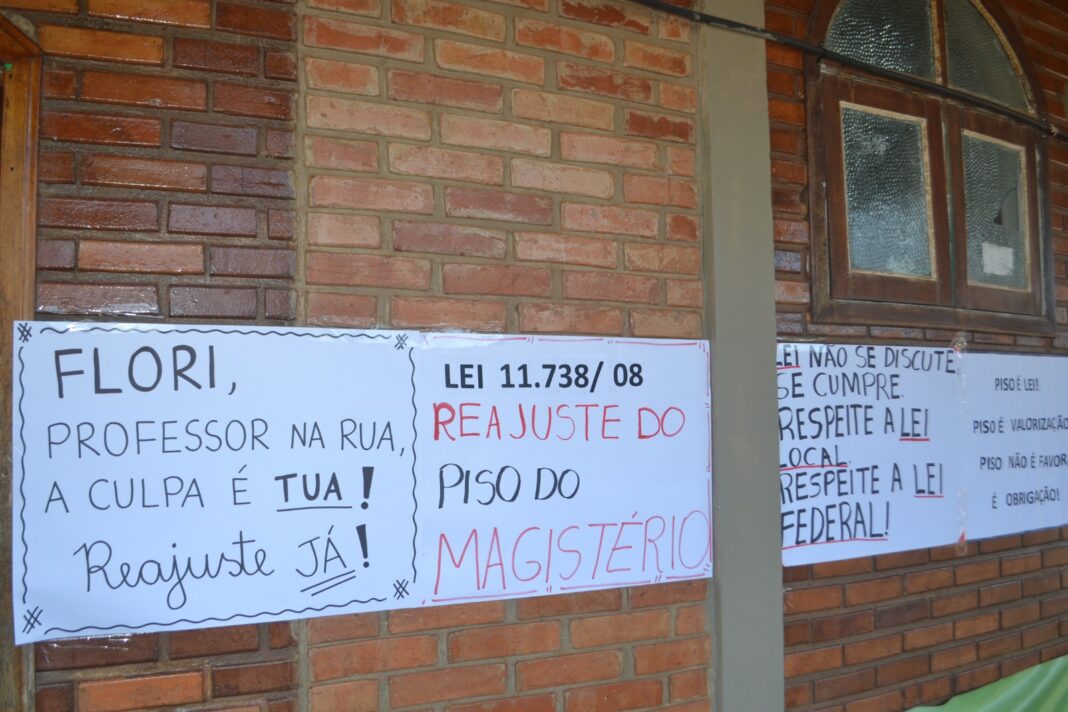 FLORI,
PROFESSOR NA RUA,
A CULPA É TUA!
Reajuste JÁ!
LEI 11.738/ 08
REAJUSTE DO
PISO DO
MAGISTÉRIO
LEI NÃO SE DISCUTE
SE CUMPRE.
RESPEITE A LEI
LOCAL.
RESPEITE A LEI
FEDERAL!
PISO É LEI!
PISO É VALORIZAÇÃO
PISO NÃO É FAVOR
É OBRIGAÇÃO!